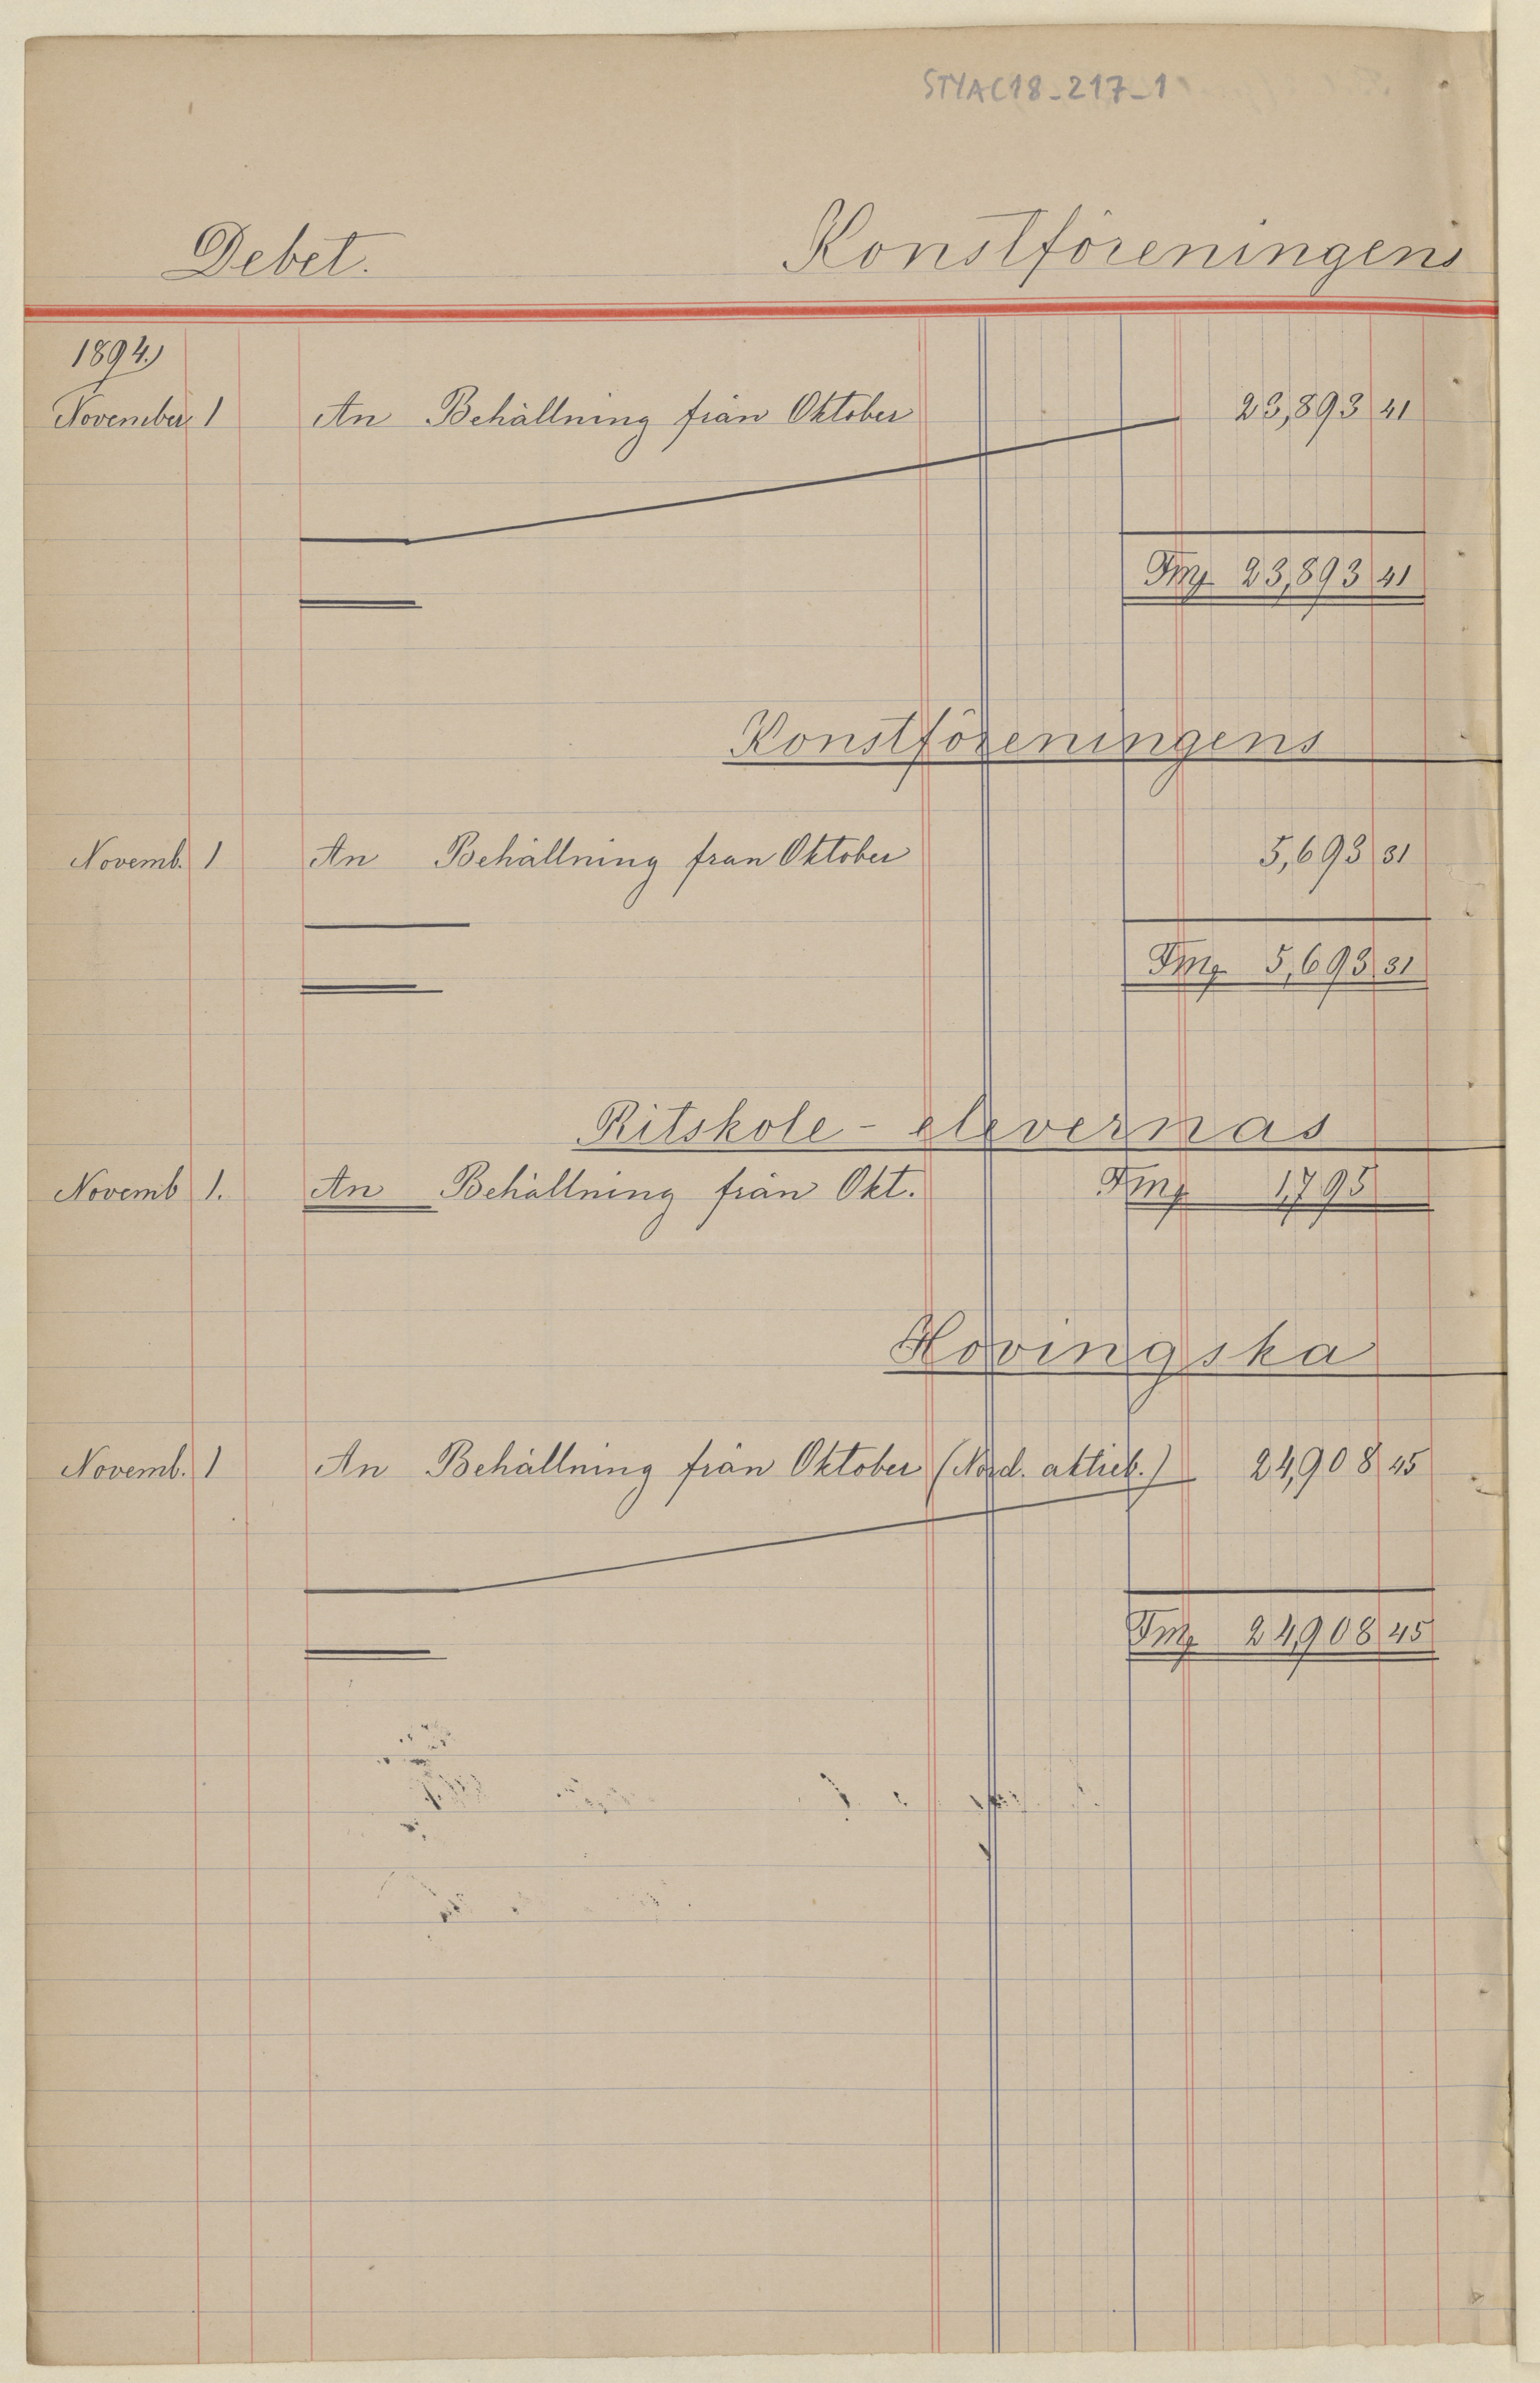 STYAC18_217_1
Debet. Konstföreningens
1894.
November 1 An Behållning från Oktober 23,893 41
Fmg 23,893 41
Konstföreningens
Novemb. 1 An Behållning från Oktober 5,693 31
Fmg 5,693 31
Ritskole-elevernas
Novemb 1. An Behållning från Okt. Fmg 1,795
Hovingska
Novemb. 1 An Behållning från Oktober (Nord. aktieb.) 24,908 45
Fmg 24,908 45